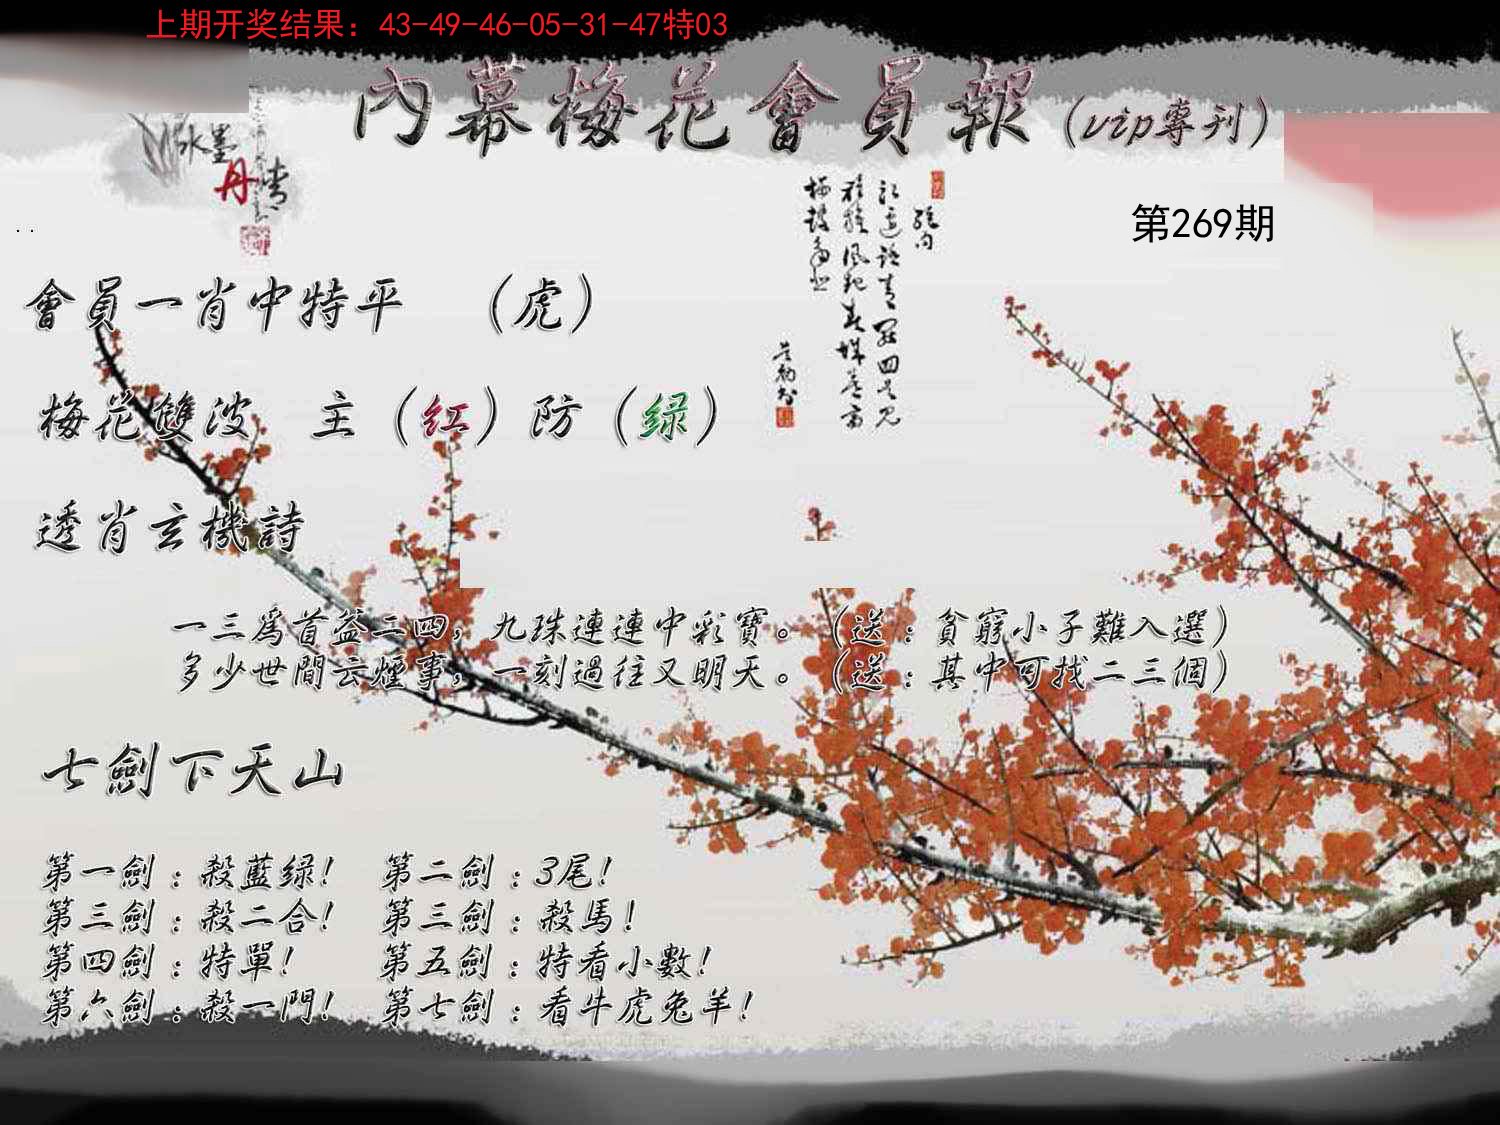 上期开奖结果：43-49-46-05-31-47特03
內幕梅花會員報（vip專刊）
水墨
丹
第269期
. .
會員一肖中特平　（虎）
梅花雙波　主（红）防（绿）
透肖玄機詩
一三爲首益二四，九珠連連中彩寶。（送：貧窮小子難入選）
多少世間云煙事，一刻過往又明天。（送：其中可找二三個）
七劍下天山
第一劍：殺藍绿！　第二劍：3尾！
第三劍：殺二合！　第三劍：殺馬！
第四劍：特單！　第五劍：特看小數！
第六劍：殺一門！　第七劍：看牛虎兔羊！